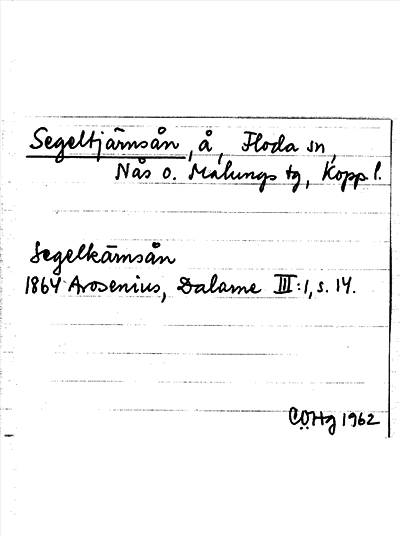 Segeltjärnsån, å, Floda sn,
Nås o. Malungs tg, Kopp l.
Segelkärnsån
1864 Arosenius, Dalarne III:1, s. 14.
CÖHg 1962